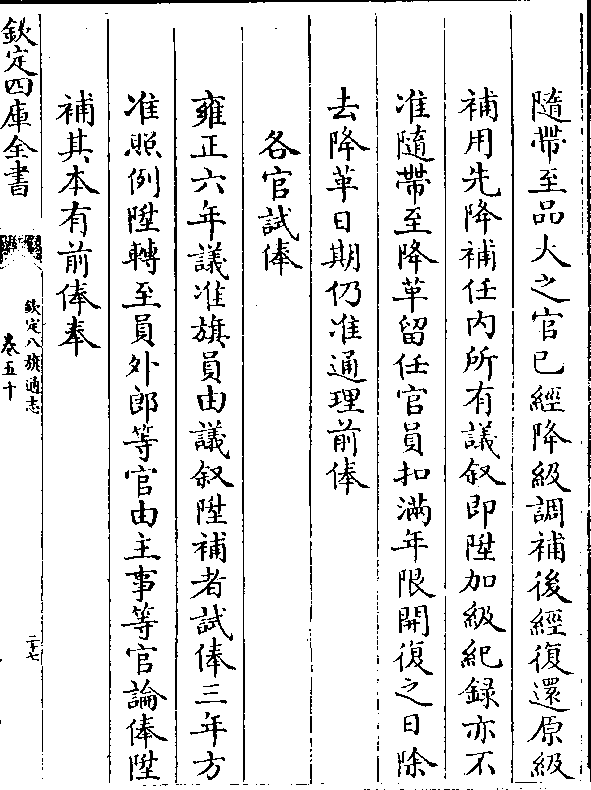 隨帶至品大之官已經降級調補後經復還原級
補用先降補任内所有議叙即陞加級紀録亦不
准隨帶至降革留任官員扣滿年限開復之日除
去降革日期仍准通理前俸
各官試俸
雍正六年議准旗員由議叙陞補者試俸三年方
准照例陞轉至員外郎等官由主事等官論俸陞
補其本有前俸奉
欽定四庫全書
欽定八旗通志
卷五十
二十七